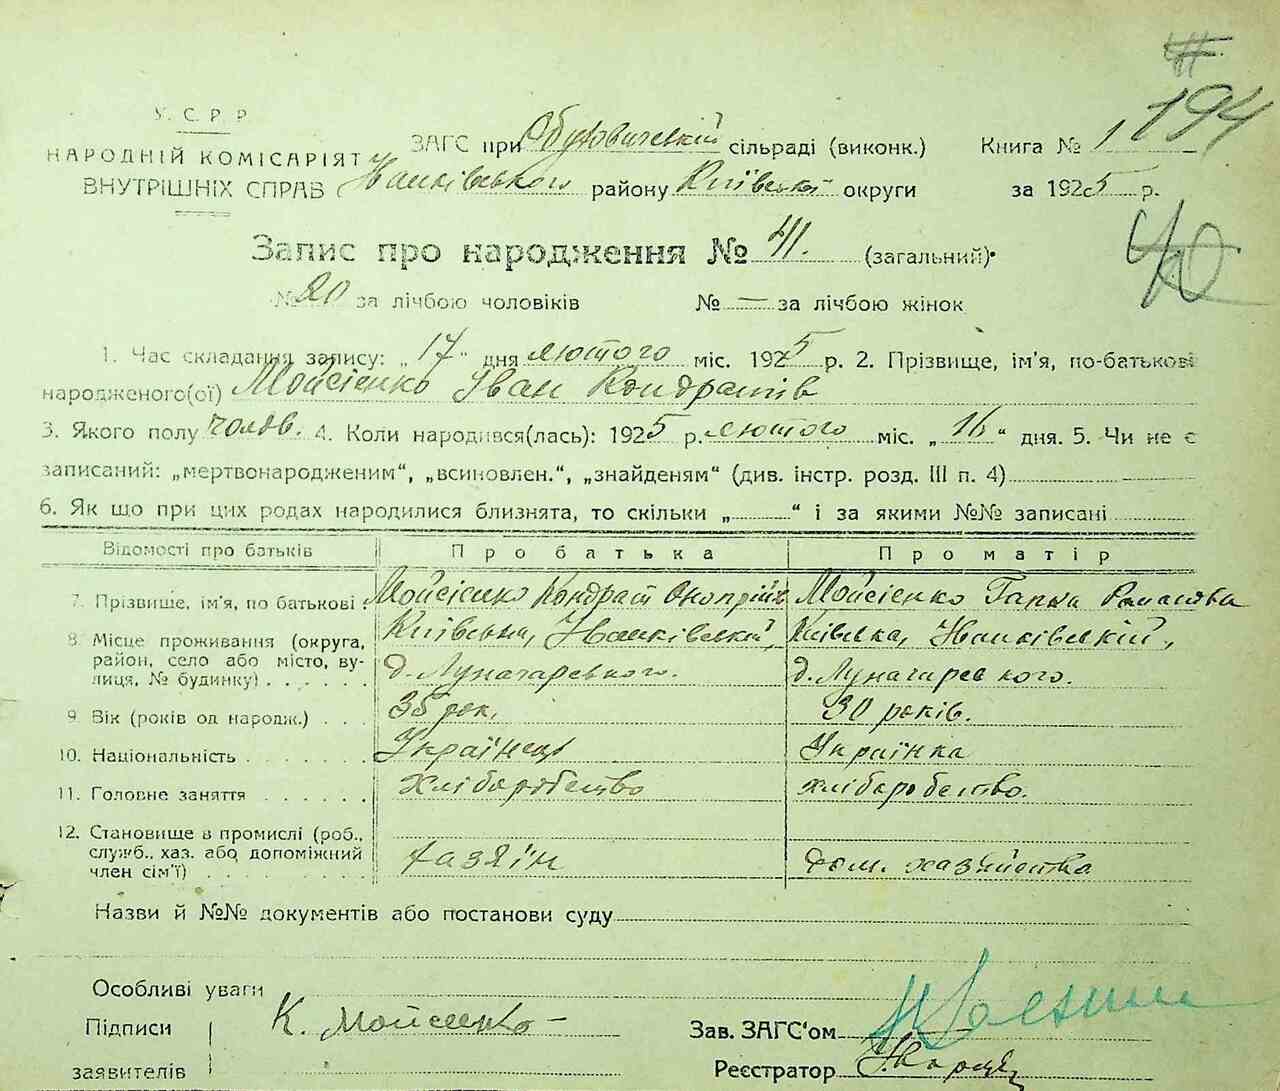 194
У. С. Р. Р.
НАРОДНІЙ КОМІСАРІЯТ
ВНУТРІШНІХ СПРАВ
ЗАГС при Обуховичській сільраді (виконк.) Книга № 1
Іванківського району Київської округи за 1925 р.
40
Запис про народження № 41. (загальний)
№ 20 за лічбою чоловіків № — за лічбою жінок
1. Час складання запису: „17“ дня лютого міс. 1925 р. 2. Прізвище, ім'я, по-батькові
народженого(ої) Мойсієнко Іван Кондратів
3. Якого полу чолов. 4. Коли народився(лась): 1925 р. лютого міс. „16“ дня. 5. Чи не є
записаний: „мертвонародженим“, „всиновлен.“, „знайденям“ (див. інстр. розд. III п. 4)
6. Як що при цих родах народилися близнята, то скільки „ “ і за якими №№ записані
Відомості про батьків Про батька Про матір
7. Прізвище, ім'я, по батькові Мойсієнко Кондрат Онопрійів Мойсієнко Ганна Романова
8. Місце проживання (округа, Київська, Іванківський, Київська, Іванківський,
район, село або місто, ву-
лиця, № будинку) д. Луначарського. д. Луначарського.
9. Вік (років од народж.) 35 рок. 30 років.
10. Національність Українець Українка
11. Головне заняття хліборобство хліборобство.
12. Становище в промислі (роб.,
служб., хаз. або допоміжний
член сім'ї) хазяїн дом. хазяйства
Назви й №№ документів або постанови суду
Особливі уваги
Підписи К. Мойсиенко Зав. ЗАГС'ом
заявителів Реєстратор